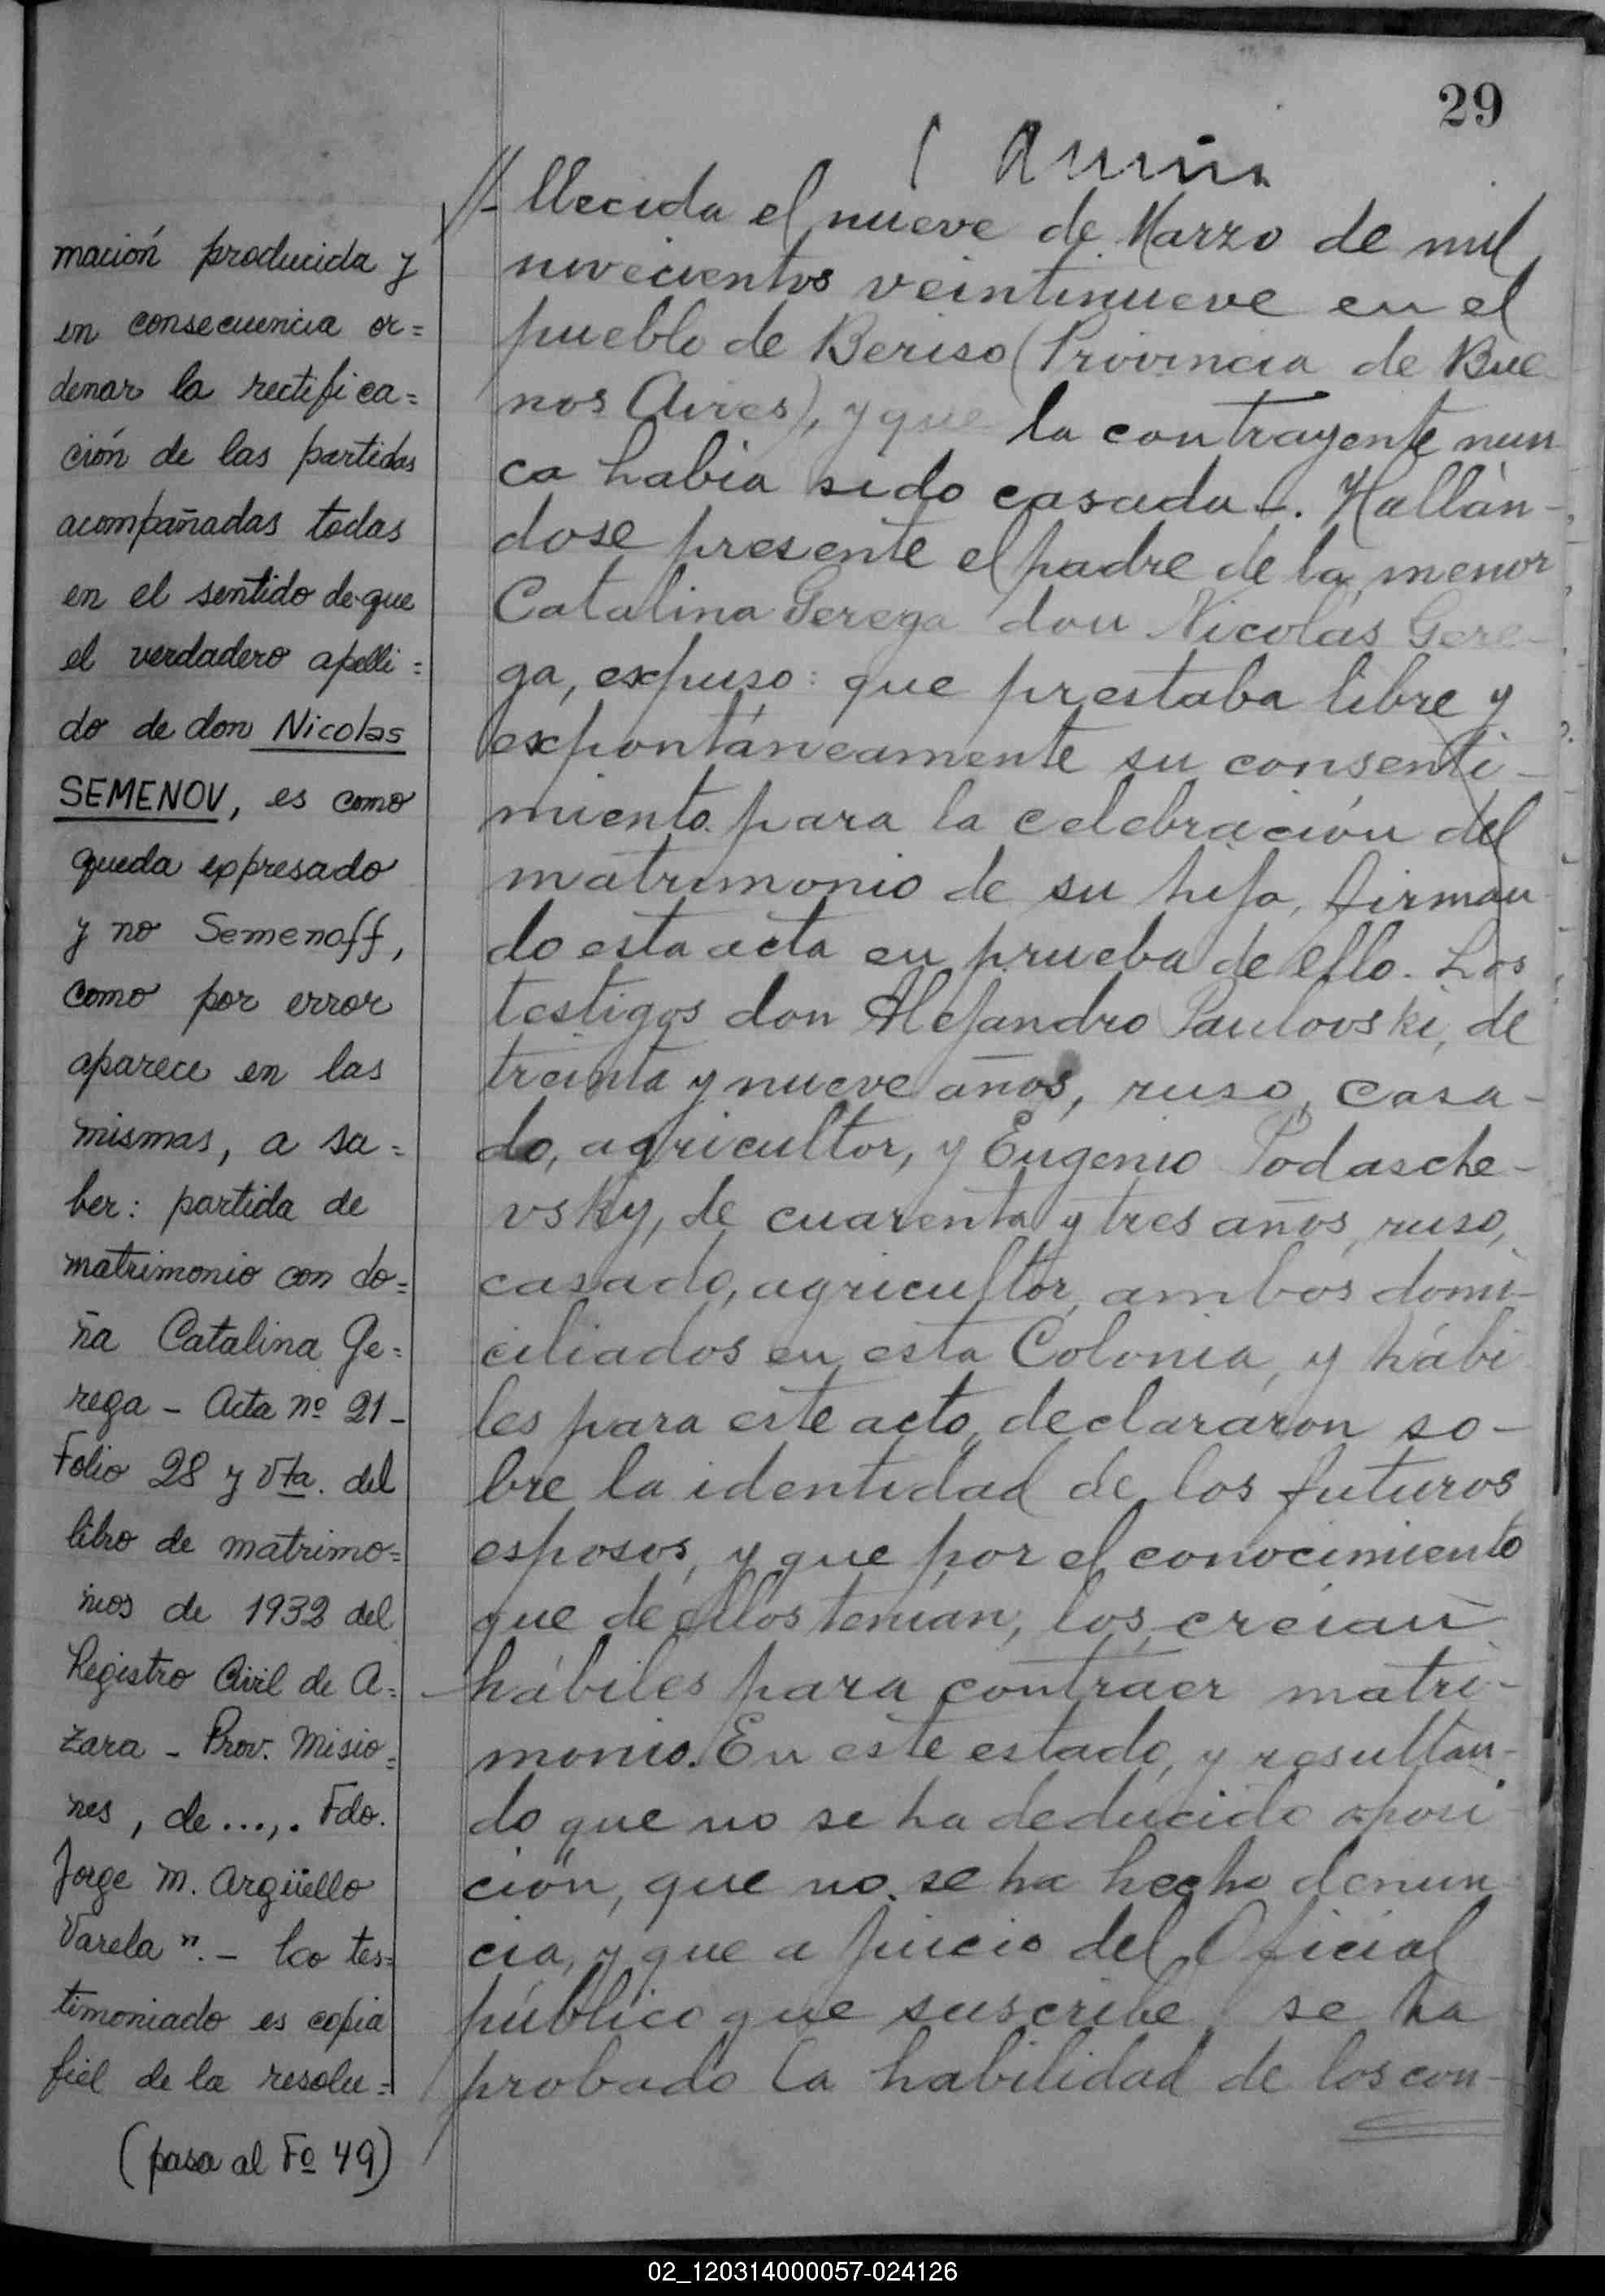 29
mación producida y
en consecuencia or=
denar la rectifica=
ción de las partidas
acompañadas todas
en el sentido de que
el verdadero apelli=
do de don Nicolas
SEMENOV, es como
queda expresado
y no Semenoff,
como por error
aparece en las
mismas, a sa=
ber: partida de
matrimonio con do=
ña Catalina Ge=
rega - Acta nº 21-
Folio 28 y Vta. del
libro de matrimo=
nios de 1932 del
Registro Civil de A=
zara - Prov. Misio=
nes, de...,. Fdo.
Jorge M. Argüello
Varela". - Lo tes=
timoniado es copia
fiel de la resolu=
(pasa al Fº 49)
//- llecida el nueve de Marzo de mil
novecientos veintinueve en el
pueblo de Beriso (Provincia de Bue
nos Aires), y que la contrayente nun
ca habia sido casada -. Hallán-
dose presente el padre de la menor
Catalina Gerega don Nicolás Gere-
ga, expuso: que prestaba libre y
expontáneamente su consenti-
miento para la celebración del
matrimonio de su hija, firman
do esta acta en prueba de ello. Los
testigos don Alejandro Paulovski, de
treinta y nueve años, ruso, casa-
do, agricultor, y Eugenio Podasche-
vsky, de cuarenta y tres años, ruso,
casado, agricultor, ambos domi-
ciliados en esta Colonia, y hábi
les para este acto, declararon so-
bre la identidad de los futuros
esposos, y que por el conocimiento
que de ellos tenian, los creian
hábiles para contraer matri-
monio. En este estado, y resultan-
do que no se ha deducido oposi
ción, que no se ha hecho denun
cia, y que a juicio del Oficial
público que suscribe, se ha
probado la habilidad de los con-
02_120314000057-024126